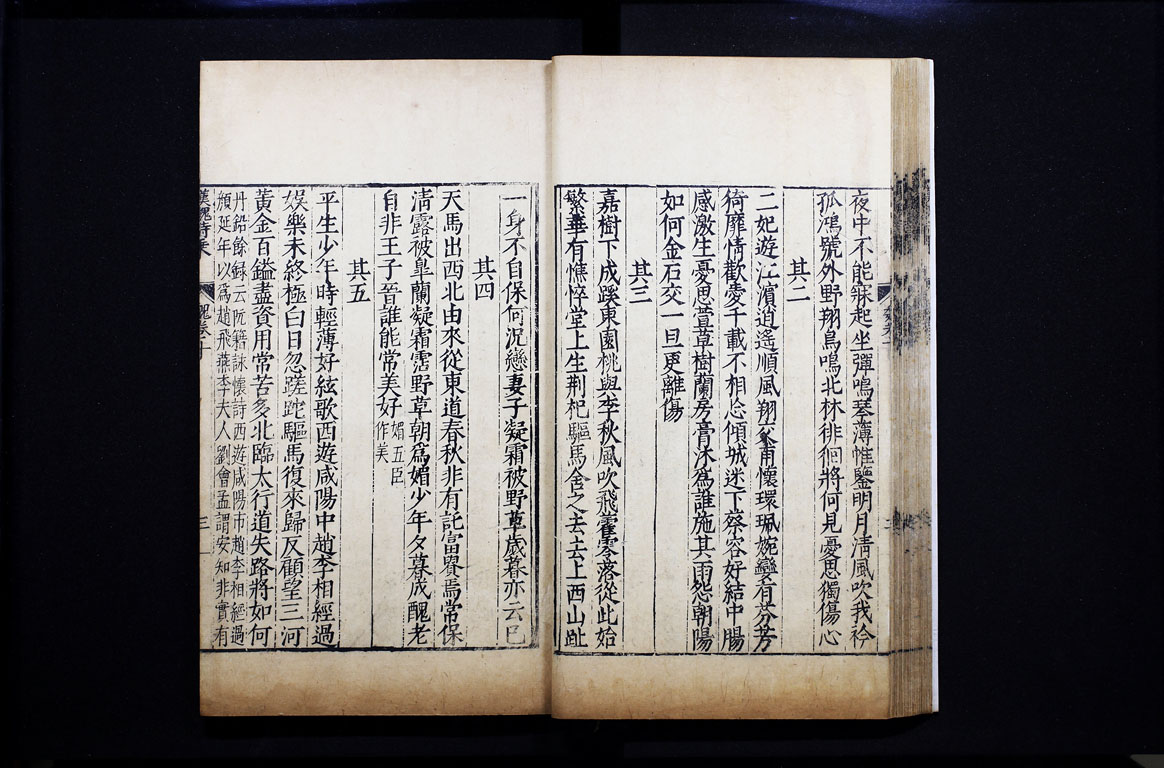 夜中不能寐起坐彈鳴琴薄帷鑒明月清風吹我衿
孤鴻號外野翔鳥鳴北林徘徊將何見憂思獨傷心
其二
二妃遊江濱逍遙順風翔交甫懷環珮婉孌有芬芳
猗靡情歡愛千載不相忘傾城迷下蔡容好結中腸
感激生憂思萱草樹蘭房膏沐為誰施其雨怨朝陽
如何金石交一旦更離傷
其三
嘉樹下成蹊東園桃與李秋風吹飛藿零落從此始
繁華有憔悴堂上生荆杞驅馬舍之去去上西山趾
一身不自保何況戀妻子凝霜被野草歲暮亦云已
其四
天馬出西北由來從東道春秋非有託富貴焉常保
清露被皐蘭凝霜霑野草朝為媚少年夕暮成醜老
自非王子晉誰能常美好
媚五臣
作美
其五
平生少年時輕薄好絃歌西遊咸陽中趙李相經過
娛樂未終極白日忽蹉跎驅馬復來歸反顧望三河
黃金百鎰盡資用常苦多北臨太行道失路將如何
丹鉛餘錄云阮籍詠懷詩西遊咸陽市趙李相經過
顏延年以為趙飛燕李夫人劉會孟謂安知非實有
漢魏詩乘
魏卷十
三